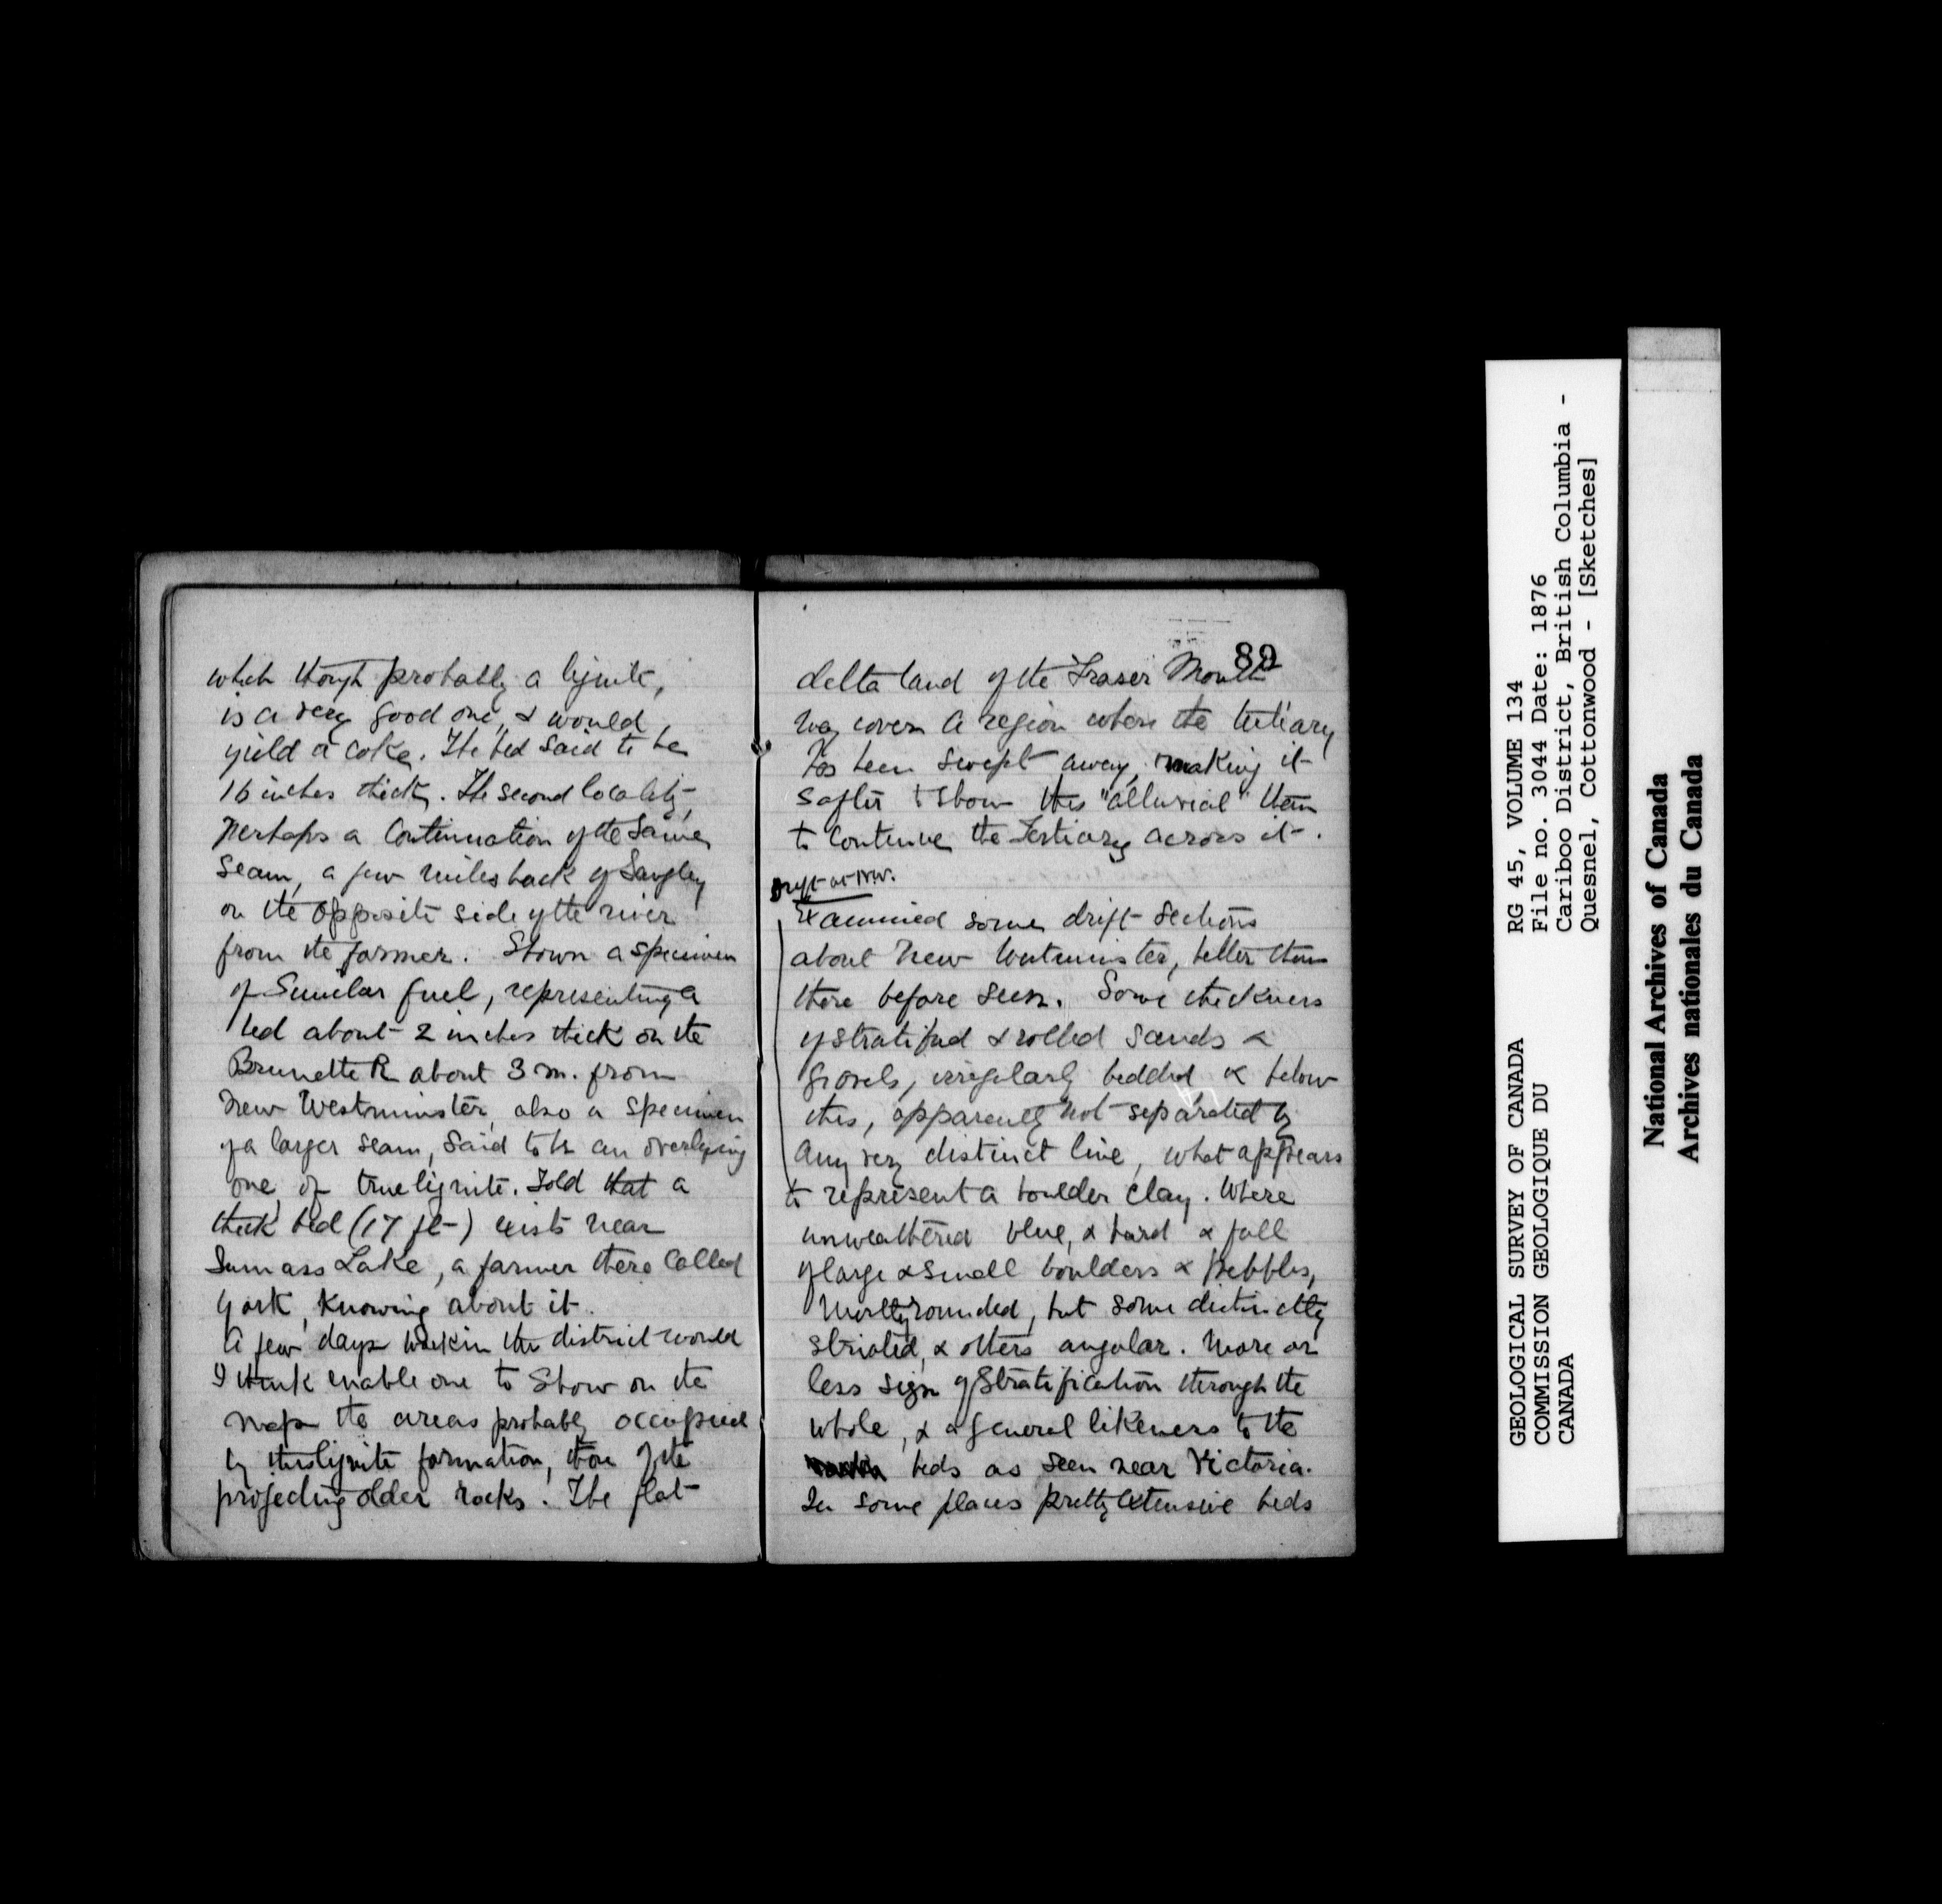 which though probably a lignite,
is a very good one, & would
yield a coke. The bed said to be
16 inches thick. The second locality,
perhaps a continuation of the same
seam, a few miles back of Langley
on the opposite side of the river
from the former. Shown a specimen
of similar fuel, representing a
bed about 2 inches thick on the
Brunette R about 3 m. from
New Westminster, also a specimen
of a larger seam, said to be an overlying
one, of true lignite. Told that a
thick bed (17 ft) exists near
Sumass Lake, a farmer there called
York, knowing about it.
A few days work in the district would
I think enable one to show on the
map the areas probably occupied
by this lignite formation, & of the
projecting older rocks. The flat
89
delta land of the Fraser Mouth
may cover a region where the tertiary
has been swept away, making it
safer to show this "alluvial" than
to continue the Tertiary across it.
Drift at N.W.
Examined some drift sections
about New Westminster, better than
there before seen. Some thickness
of stratified & rolled sands &
gravels, irregularly bedded & below
this, apparently not separated by
any very distinct line, what appears
to represent a boulder clay. Where
unweathered blue, & hard & full
of large & small boulders & pebbles,
Mostly rounded, but some distinctly
striated, & others angular. More or
less sign of stratification through the
whole, & a general likeness to the
beds as seen near Victoria.
In some places pretty extensive beds
GEOLOGICAL SURVEY OF CANADA
COMMISSION GEOLOGIQUE DU
CANADA
RG 45, VOLUME 134
File no. 3044 Date: 1876
Cariboo District, British Columbia -
Quesnel, Cottonwood - [Sketches]
National Archives of Canada
Archives nationales du Canada